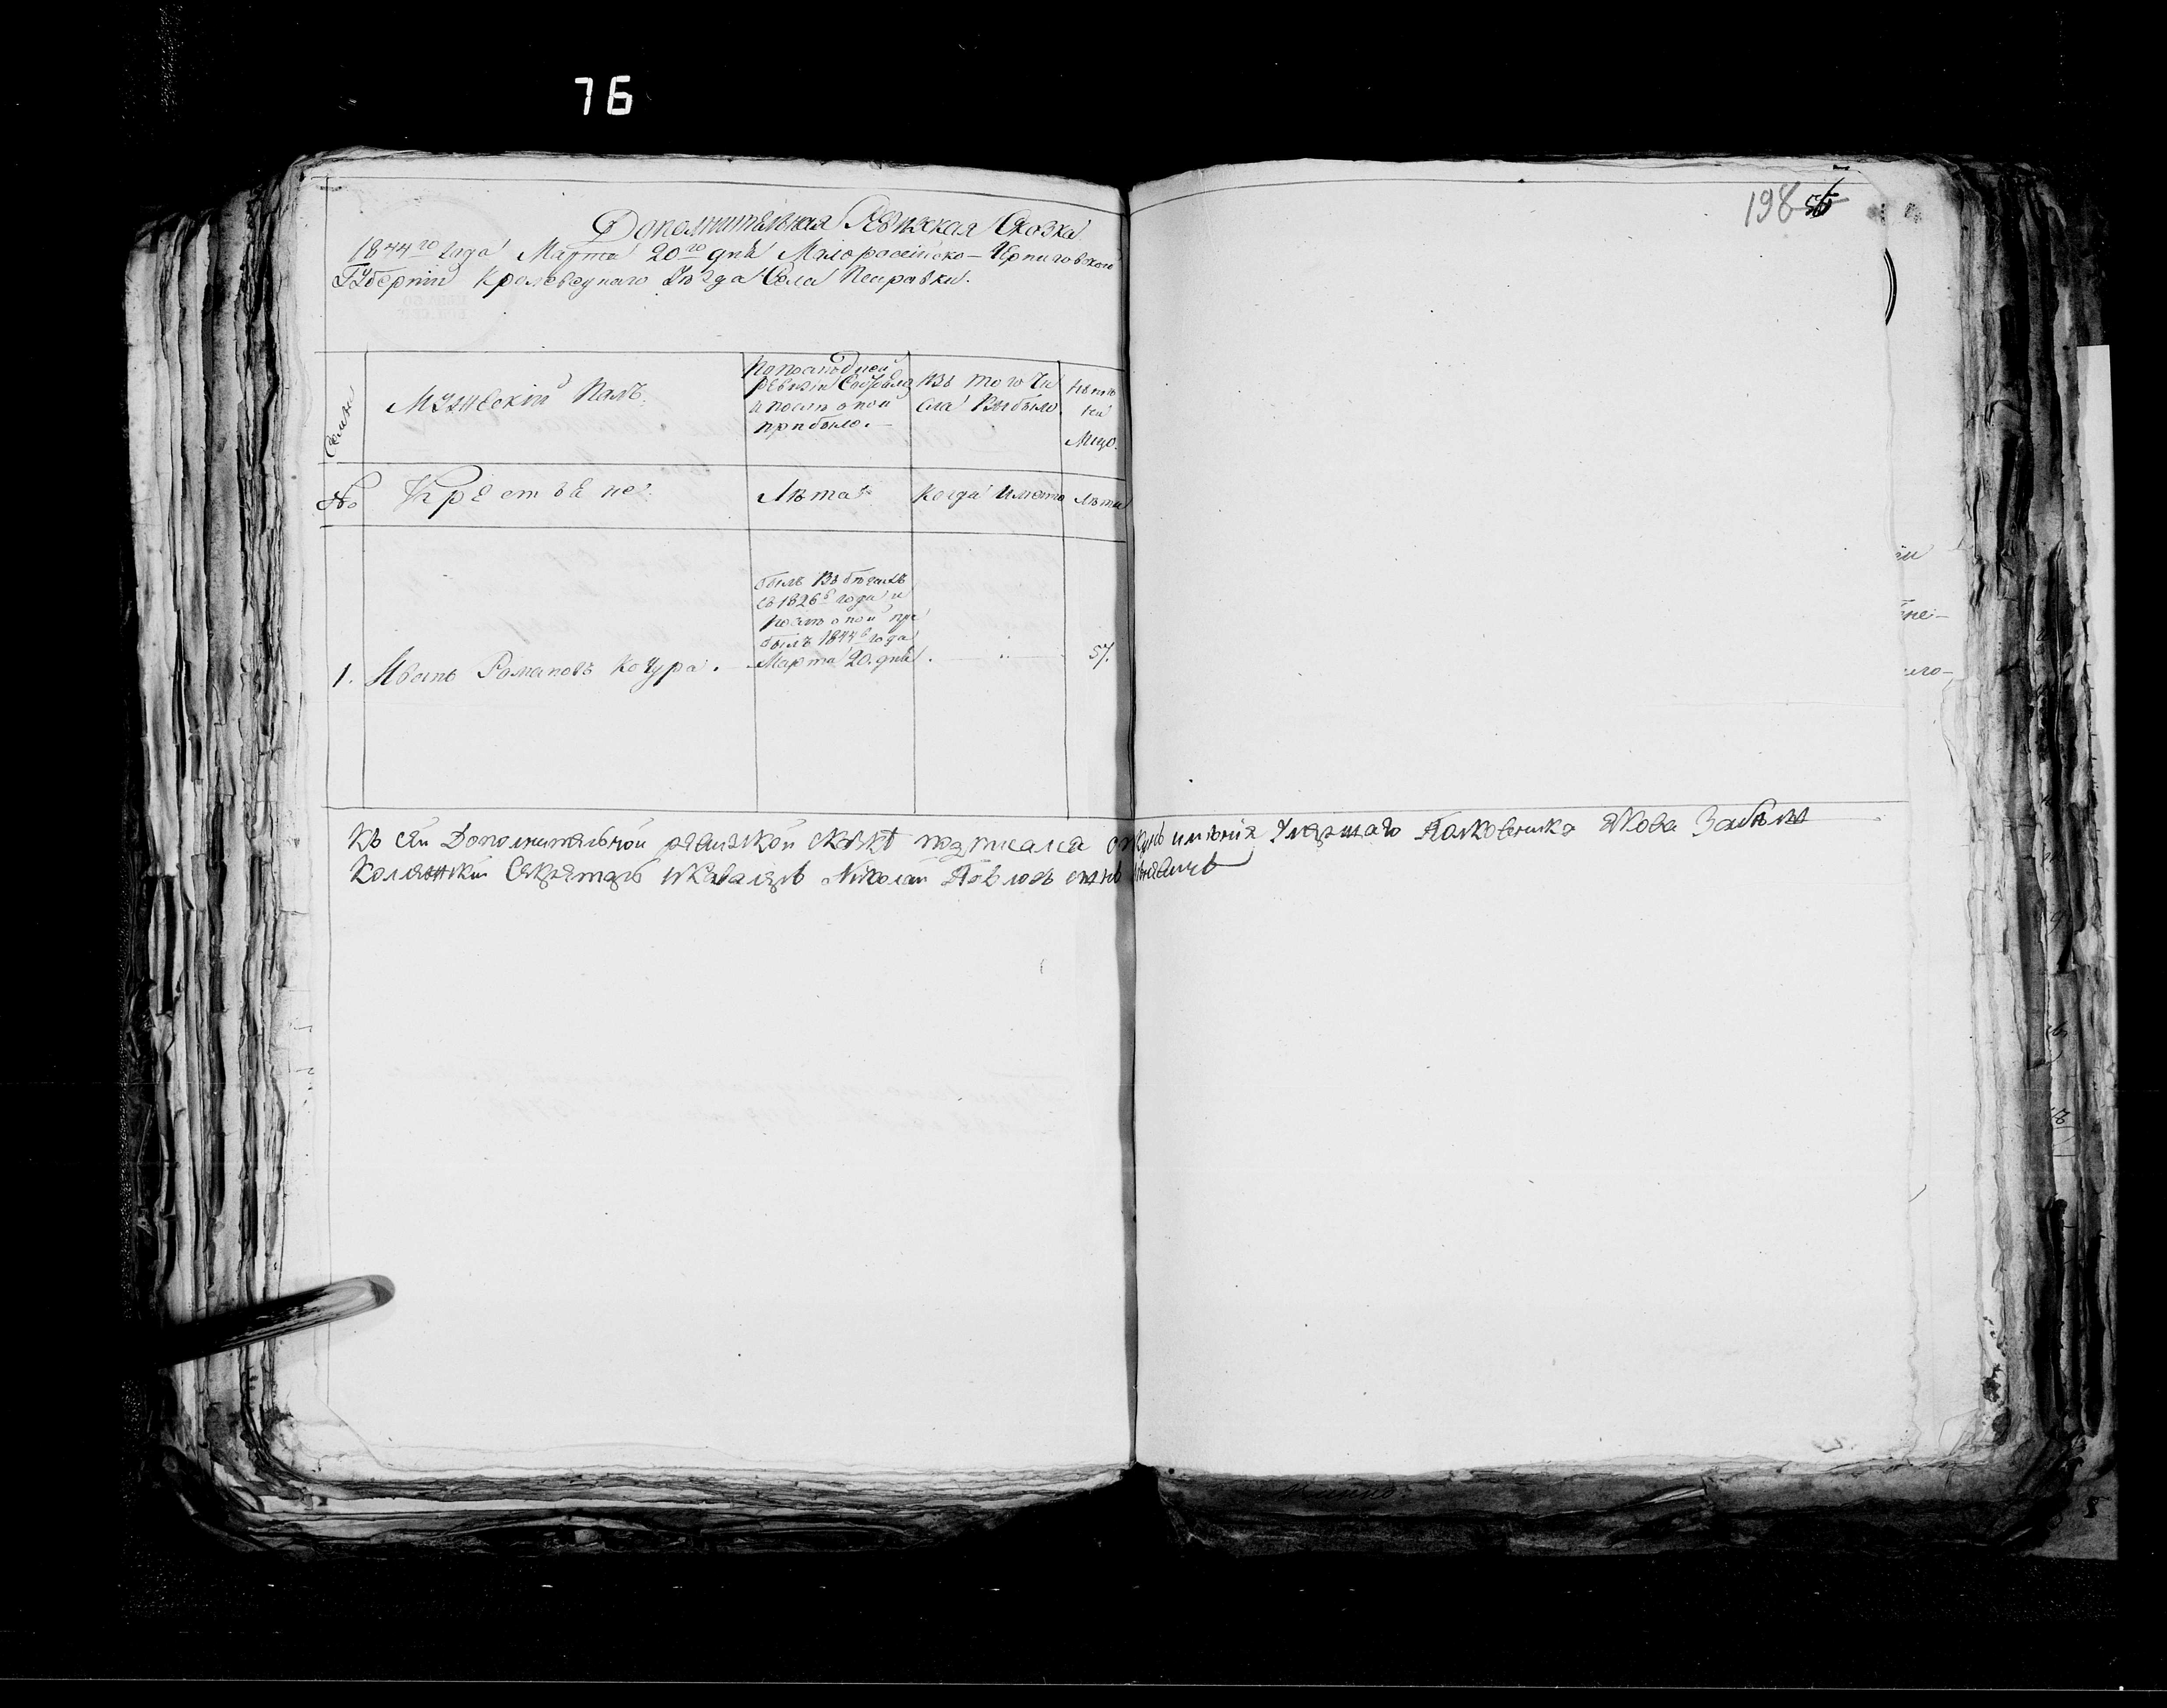 76
198 56
Дополнительная Ревизская Сказка
1844го года Марта 20го дня Малоросейско-Черниговской
Губернии Кролевецкаго Уезда Села
Семьи
Мужеский Полъ.
По последней
ревизии Состояло
и после оной
прибыло.
Изъ того Чи
сла Выбыло.
Ныне
Лицо.
№
Крестьяне.
Лета.
Когда имянно
Лета
1.
Иванъ Романовъ Кочура.
былъ въ бегахъ
съ 1826го года и
после оной при
былъ 1844го года
Марта 20. дня
57.
Къ сей Дополнительной ревизской скаске подписался опекунъ имения Умершаго Полковника Якова Забелы
Колежский Секретарь и Кавалеръ Николай Павловъ сынъ